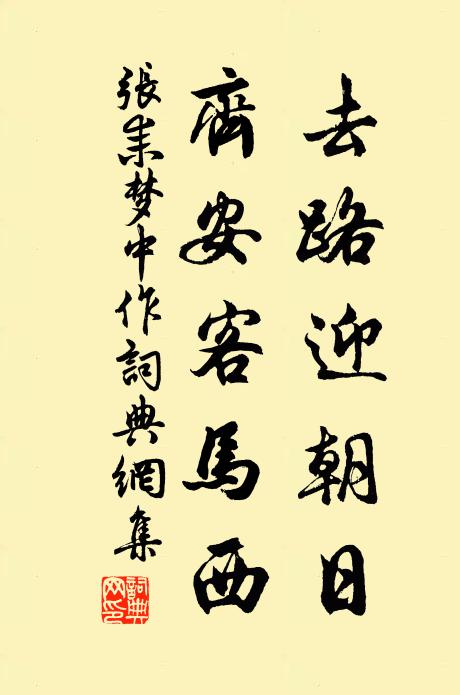 去路迎朝日
齊安客馬西
張耒夢中作詞典網集
詞典網印